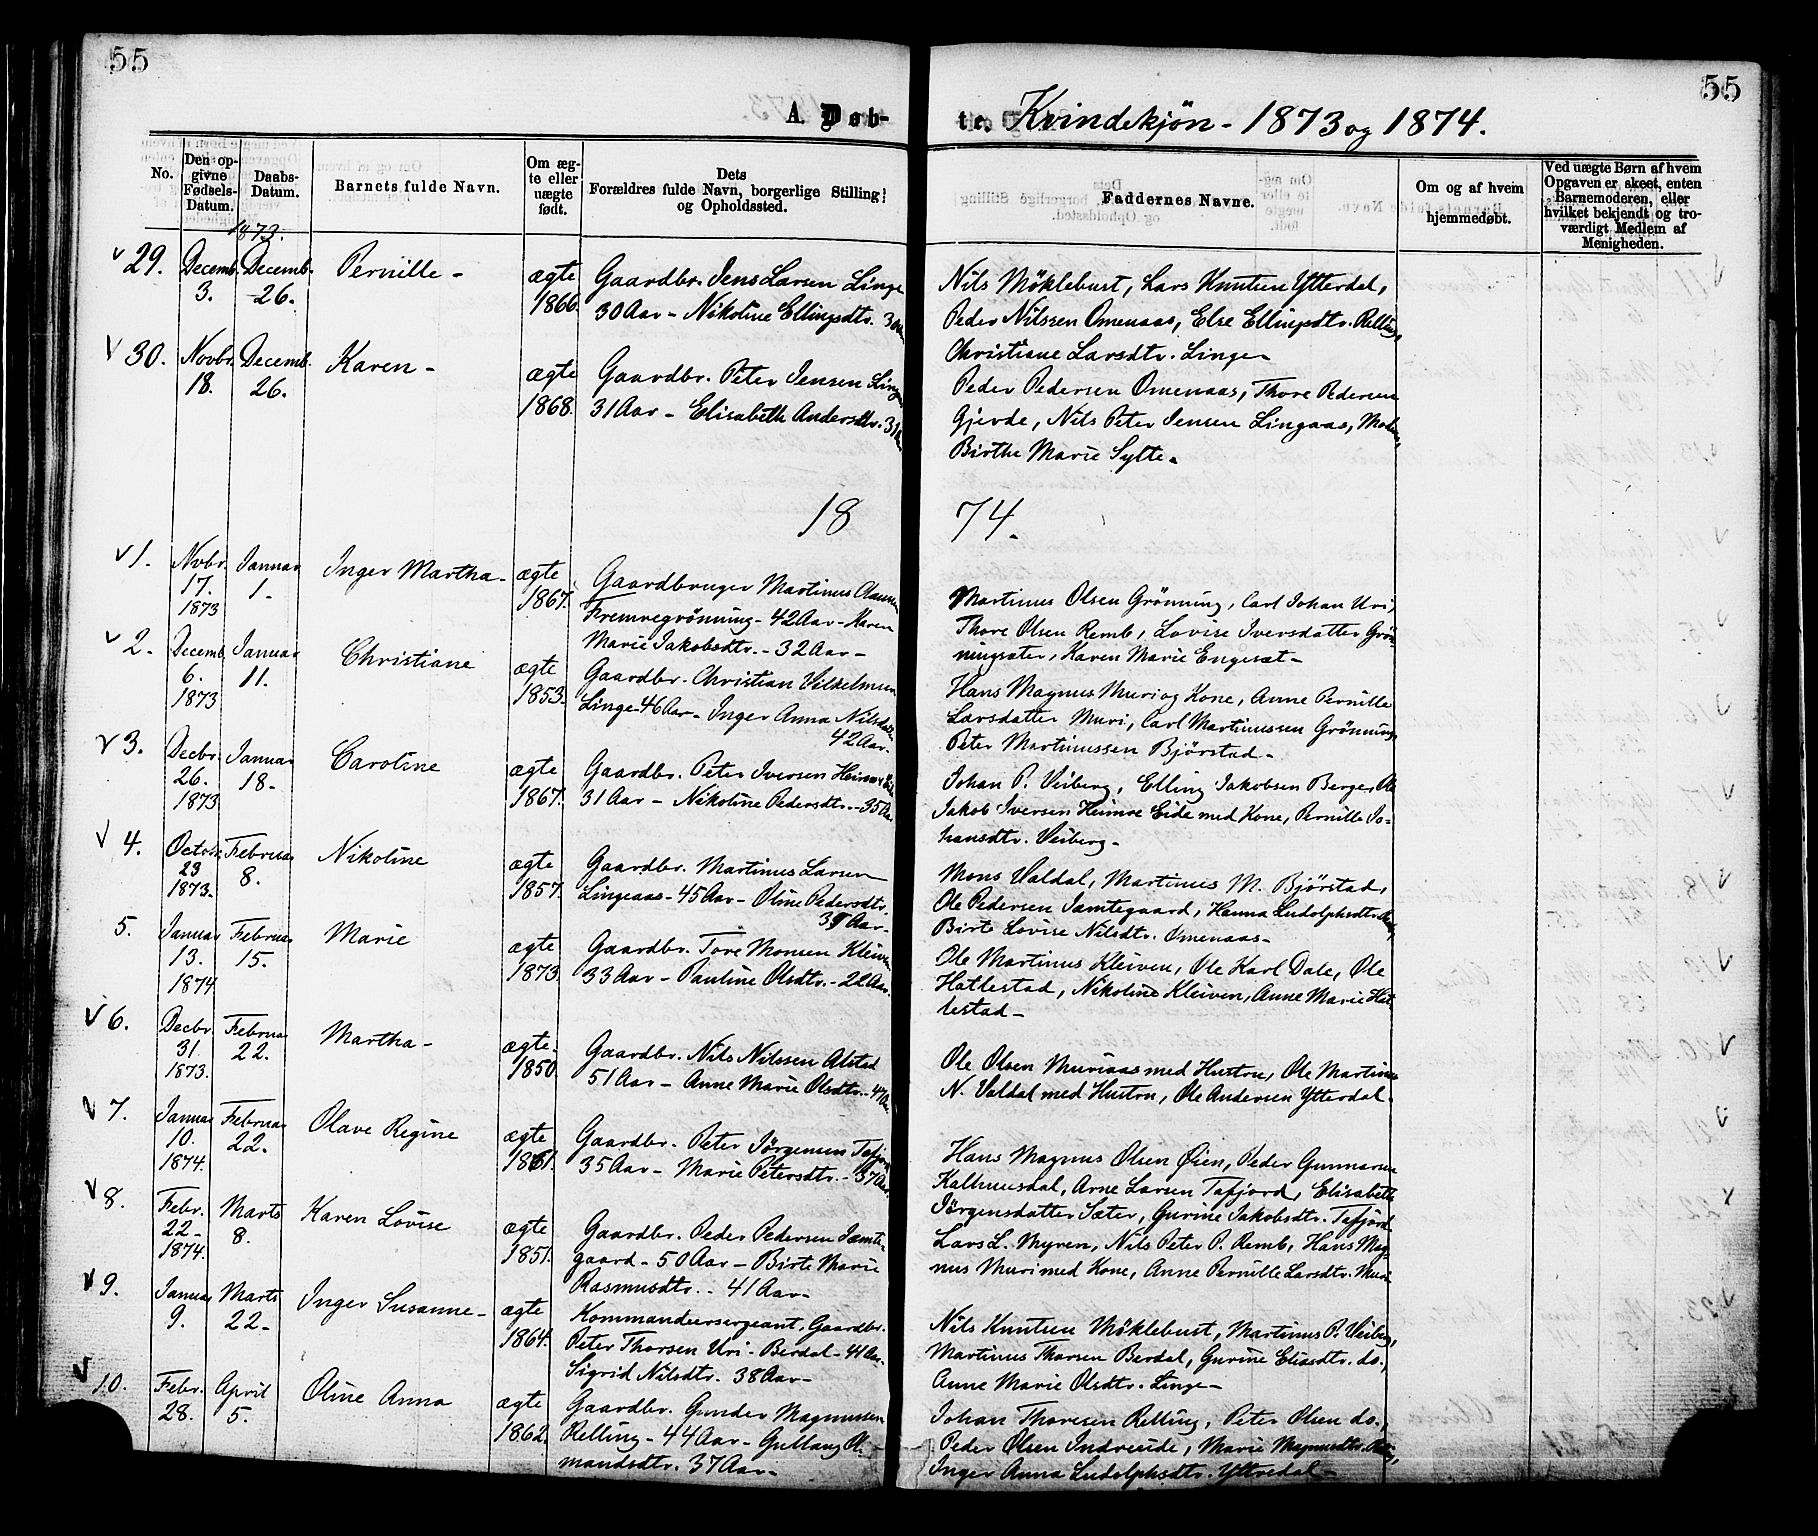 55
55
A. Døb-
te. Kvindekjön - 1873 og 1874.
No.
Den op-
givne
Fødsels-
Datum.
Daabs-
Datum.
Barnets fulde Navn.
Om æg-
te eller
uægte
født.
Dets
Forældres fulde Navn, borgerlige Stilling
og Opholdssted.
Faddernes Navne.
Om og af hvem
hjemmedøbt.
Ved uægte Børn af hvem
Opgaven er skeet, enten
Barnemoderen, eller
hvilket bekjendt og tro-
værdigt Medlem af
Menigheden.
1873.
29. Decemb. 3. Decemb. 26. Pernille - ægte 1866.
Gaardbr. Jens Larsen Linge
30 Aar - Nikoline Ellingsdtr.
Nils Möklebust, Lars Knutsen Ytterdal,
Peder Nilssen Omenaas, Else Ellingsdtr. Relling,
Christiane Larsdtr. Linge
30. Novbr. 18. Decemb. 26. Karen - ægte 1868.
Gaardbr. Peter Jensen
31 Aar - Elisabeth Andersdtr.
Peder Pedersen Omenaas, Thore Pedersen
Gjerde, Nils Peter Jensen Lingaas,
Birthe Marie Sylte.
1874.
1. Novbr. 17. 1873 Januar 1. Inger Martha - ægte 1867.
Gaardbruger Martinus
Fremregrönning - 42 Aar - Karen
Marie Jakobsdtr. - 32 Aar -
Martinus Olsen Grönning, Carl Johan Uri,
Thore Olsen Remb, Lovise Iversdatter Grön-
ningsæter, Karen Marie Engeset -
2. Decemb. 6. 1873 Januar 11. Christiane ægte 1853.
Gaardbr. Christian Vilhelmsen
Linge - 46 Aar - Inger Anna
42 Aar -
Hans Magnus Muri og Kone, Anne Pernille
Larsdatter Muri, Carl Martinussen Grönning,
Peter Martinussen Bjørstad -
3. Decbr. 26. 1873 Januar 18. Caroline ægte 1867.
Gaardbr. Peter Iversen
31 Aar - Nikoline Pedersdtr. - 35 Aar
Johan P. Veiberg, Elling Jakobsen Berge, Ole
Jakob Iversen Heimre Eide med Kone, Pernille Jo-
hansdtr. Veiberg -
4. Octobr. 23 1873. Februar 8. Nikoline ægte 1857.
Gaardbr. Martinus Larsen
Lingeaas - 45 Aar - Oline Pedersdtr.
39 Aar -
Mons Valdal, Martinus M. Bjørstad,
Ole Pedersen Jamtegaard, Hanna Ludolphsdtr.
Birte Lovise Nilsdtr. Omenaas -
5. Januar 13. 1874 Februar 15. Marie ægte 1873.
Gaardbr. Tore Monsen Kleiven
33 Aar - Pauline Olsdtr. - 22 Aar.
Ole Martinus Kleiven, Ole Karl Dale, Ole
Hatlestad, Nikoline Kleiven, Anne Marie Hat-
lestad -
6. Decbr. 31. 1873. Februar 22. Martha - ægte 1850.
Gaardbr. Nils Nilssen Alstad
51 Aar - Anne Marie Olsdtr. -
Ole Olsen Muriaas med Hustru, Ole Martinus
N. Valdal med Hustru, Ole Andersen Ytterdal.
7. Januar 10. 1874. Februar 22. Olave Regine ægte 1861.
Gaardbr. Peter Jörgensen Tafjord
35 Aar - Marie Petersdtr. - 37 Aar.
Hans Magnus Olsen Öien, Peder Gunnarsen
Kalhusdal, Arne Larsen Tafjord, Elisabeth
Jörgensdatter Sæter, Gurine Jakobsdtr. Tafjord
8. Febr. 22 - 1874. Marts 8. Karen Lovise ægte 1851.
Gaardbr. Peder Pedersen Jamte-
gaard - 50 Aar - Birte Marie
Rasmusdtr. - 41 Aar -
Lars L. Myren, Nils Peter P. Remb, Hans Mag-
nus Muri med Kone, Anne Pernille Larsdtr. Muri
9. Januar 9. Marts 22 - Inger Susanne - ægte 1864.
Kommandeersergeant, Gaardbr.
Peter Thorsen Uri - Berdal - 41 Aar
Sigrid Nilsdtr. 38 Aar -
Nils Knutsen Möklebust, Martinus P. Veiberg,
Martinus Thorsen Berdal, Gurine Eliasdtr. do.,
Anne Marie Olsdtr. Linge -
10. Febr. 28. April 5. Oline Anna ægte 1862.
Gaardbr. Gunder Magnussen
Relling - 44 Aar - Gullaug Ol-
mandsdtr. 37 Aar -
Johan Thoresen Relling, Peter Olsen do.,
Peder Olsen Indreeide, Marie Magnusdtr.
Inger Anna Ludolphsdtr. Ytterdal -